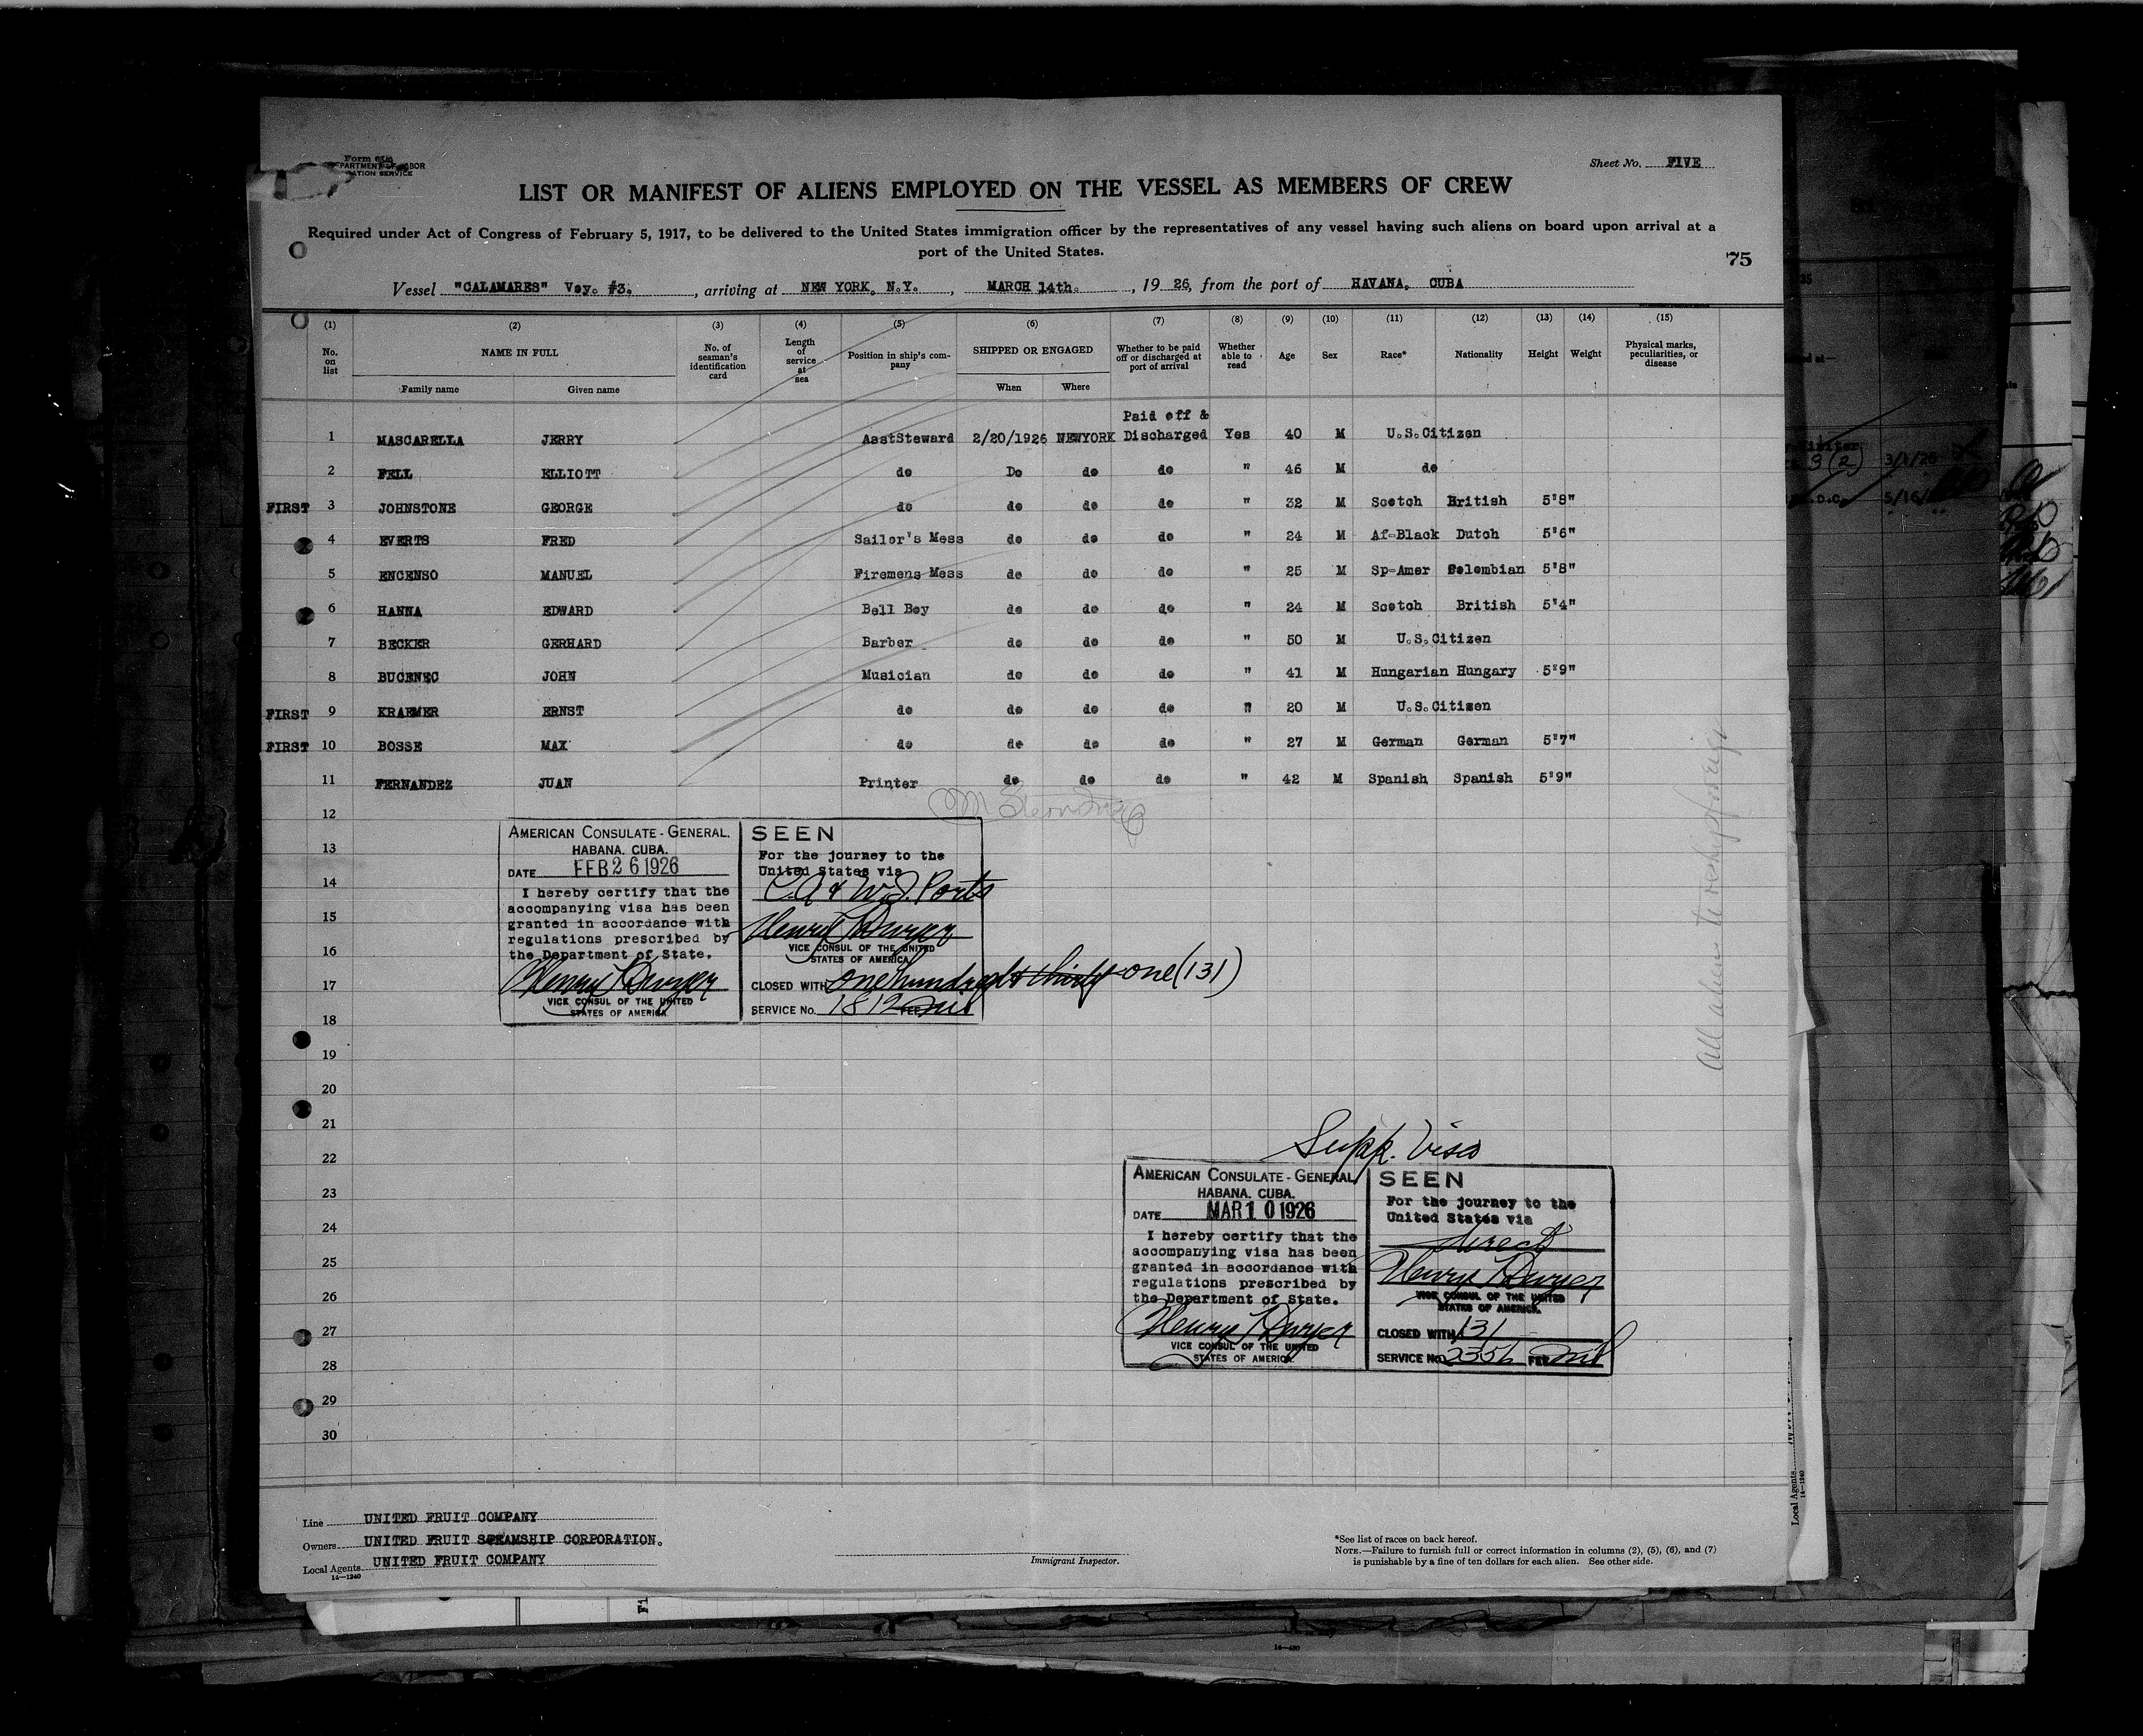 Form 6
PARTMENT OF LABOR
ATION SERVICE
Sheet No. FIVE
LIST OR MANIFEST OF ALIENS EMPLOYED ON THE VESSEL AS MEMBERS OF CREW
Required under Act of Congress of February 5, 1917, to be delivered to the United States immigration officer by the representatives of any vessel having such aliens on board upon arrival at a
port of the United States.
75
Vessel "CALAMARES" Voy. #3. , arriving at NEW YORK, N.Y. , MARCH 14th. , 19 26, from the port of HAVANA. CUBA
(1) (2) (3) (4) (5) (6) (7) (8) (9) (10) (11) (12) (13) (14) (15)
No. on list NAME IN FULL Family name Given name No. of seaman's identification card Length of service at sea Position in ship's company SHIPPED OR ENGAGED When Where Whether to be paid off or discharged at port of arrival Whether able to read Age Sex Race* Nationality Height Weight Physical marks, peculiarities, or disease
Paid off &
1 MASCARELLA JERRY AsstSteward 2/20/1926 NEWYORK Discharged Yes 40 M U.S.Citizen
2 FELL ELLIOTT do Do do do " 46 M do
FIRST 3 JOHNSTONE GEORGE do do do do " 32 M Scotch British 5'8"
4 EVERTS FRED Sailor's Mess do do do " 24 M Af-Black Dutch 5'6"
5 ENCENSO MANUEL Firemens Mess do do do " 25 M Sp-Amer Colombian 5'8"
6 HANNA EDWARD Bell Boy do do do " 24 M Scotch British 5'4"
7 BECKER GERHARD Barber do do do " 50 M U.S.Citizen
8 BUCENEC JOHN Musician do do do " 41 M Hungarian Hungary 5'9"
FIRST 9 KRAEMER ERNST do do do do " 20 M U.S.Citizen
FIRST 10 BOSSE MAX do do do do " 27 M German German 5'7"
11 FERNANDEZ JUAN Printer do do do " 42 M Spanish Spanish 5'9"
12
13
14
15
16
17
18
19
20
21
22
23
24
25
26
27
28
29
30
AMERICAN CONSULATE-GENERAL.
HABANA. CUBA.
DATE FEB 26 1926
I hereby certify that the
accompanying visa has been
granted in accordance with
regulations prescribed by
the Department of State.
VICE CONSUL OF THE UNITED
STATES OF AMERICA
SEEN
For the journey to the
United States via
C.A & W.I. Ports
VICE CONSUL OF THE UNITED
STATES OF AMERICA
CLOSED WITH one hundred & thirty one (131)
SERVICE No. 1812 FEE nil
All aliens to reship foreign
Supp. Visa
AMERICAN CONSULATE-GENERAL
HABANA. CUBA.
DATE MAR 10 1926
I hereby certify that the
accompanying visa has been
granted in accordance with
regulations prescribed by
the Department of State.
VICE CONSUL OF THE UNITED
STATES OF AMERICA.
SEEN
For the journey to the
United States via
direct
VICE CONSUL OF THE UNITED
STATES OF AMERICA.
CLOSED WITH 131
SERVICE No. 2356 FEE nil
Line UNITED FRUIT COMPANY
Owners UNITED FRUIT STEAMSHIP CORPORATION.
Local Agents UNITED FRUIT COMPANY
14—1240
Immigrant Inspector.
*See list of races on back hereof.
NOTE.—Failure to furnish full or correct information in columns (2), (5), (6), and (7)
is punishable by a fine of ten dollars for each alien. See other side.
Local Agents
14—1240